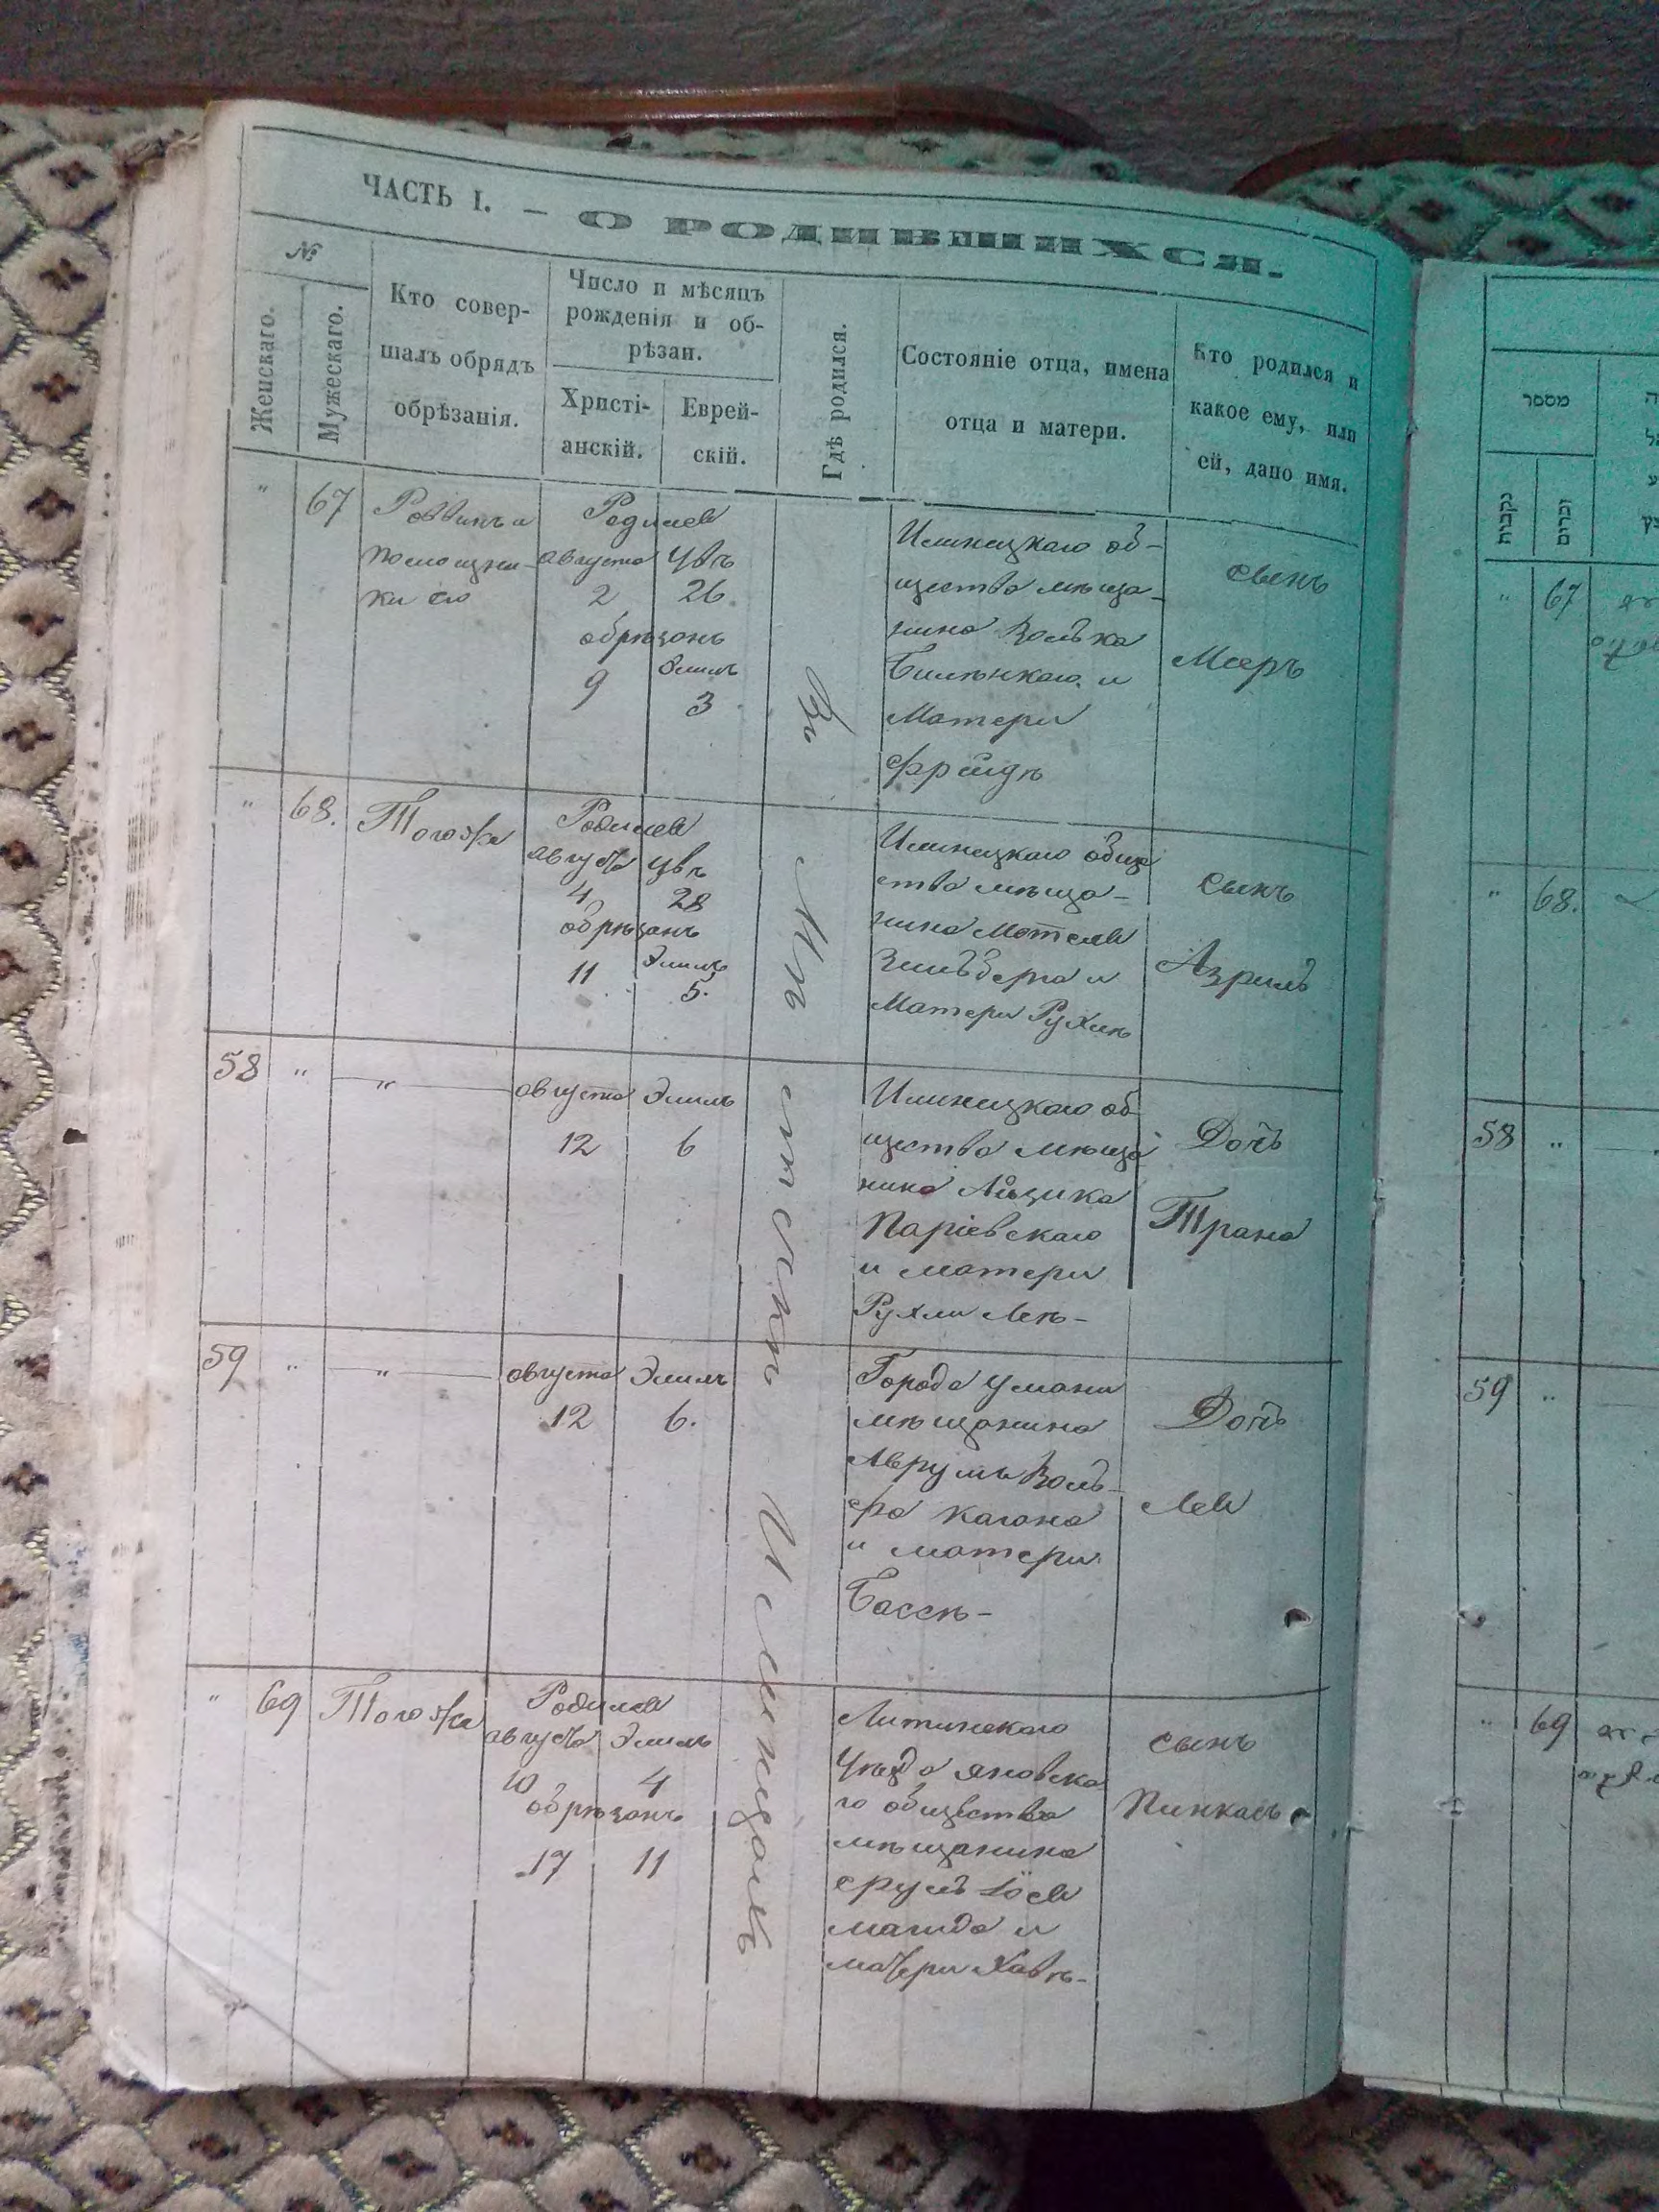 ЧАСТЬ I. — О РОДИВШИХСЯ.
№
Женскаго.
Мужескаго.
Кто совер-
шалъ обрядъ
обрѣзанія.
Число и мѣсяцъ
рожденія и об-
рѣзан.
Христі-
анскій.
Еврей-
скій.
Гдѣ родился.
Состояніе отца, имена
отца и матери.
Кто родился и
какое ему, или
ей, дано имя.
Въ Мѣстечкѣ Илинцахъ
" 67
Раввинъ и
помощни-
ки его
Родился
августа
2
обрѣзанъ
9
Эмиль
3
26
Илинецкаго об-
щества мѣща-
нина Волька
и
Матери
Фрейдѣ
сынъ
Меръ
" 68.
Тогоже
Родился
августа
4
28
обрѣзанъ
11
Эмиль
5.
Илинецкаго обще
ства мѣща-
нина Мотеля
Зильберга и
Матери Рухлѣ
сынъ
Азриль
58 " — " —
августа Эмиль
12 6
Илинецкаго об
щества мѣща
нина Айзика
Паріевскаго
и матери
Рухли Леѣ-
Дочь
Трана
59 " — " —
августа Эмиль
12 6.
Города Умани
мѣщанина
Аврумъ Воль-
фа Кагана
и матери
Бассѣ-
Дочь
Лея
" 69
Тогоже
Родился
августа Эмиль
10 4
обрѣзанъ
17 11
Литинскаго
уѣзда яновска
го общества
мѣщанина
Срулъ Іося
магида и
матери Хавѣ-
сынъ
Пинкасъ
מספר
נקבות
זכרים
" 67
" 68.
58 "
59 "
" 69